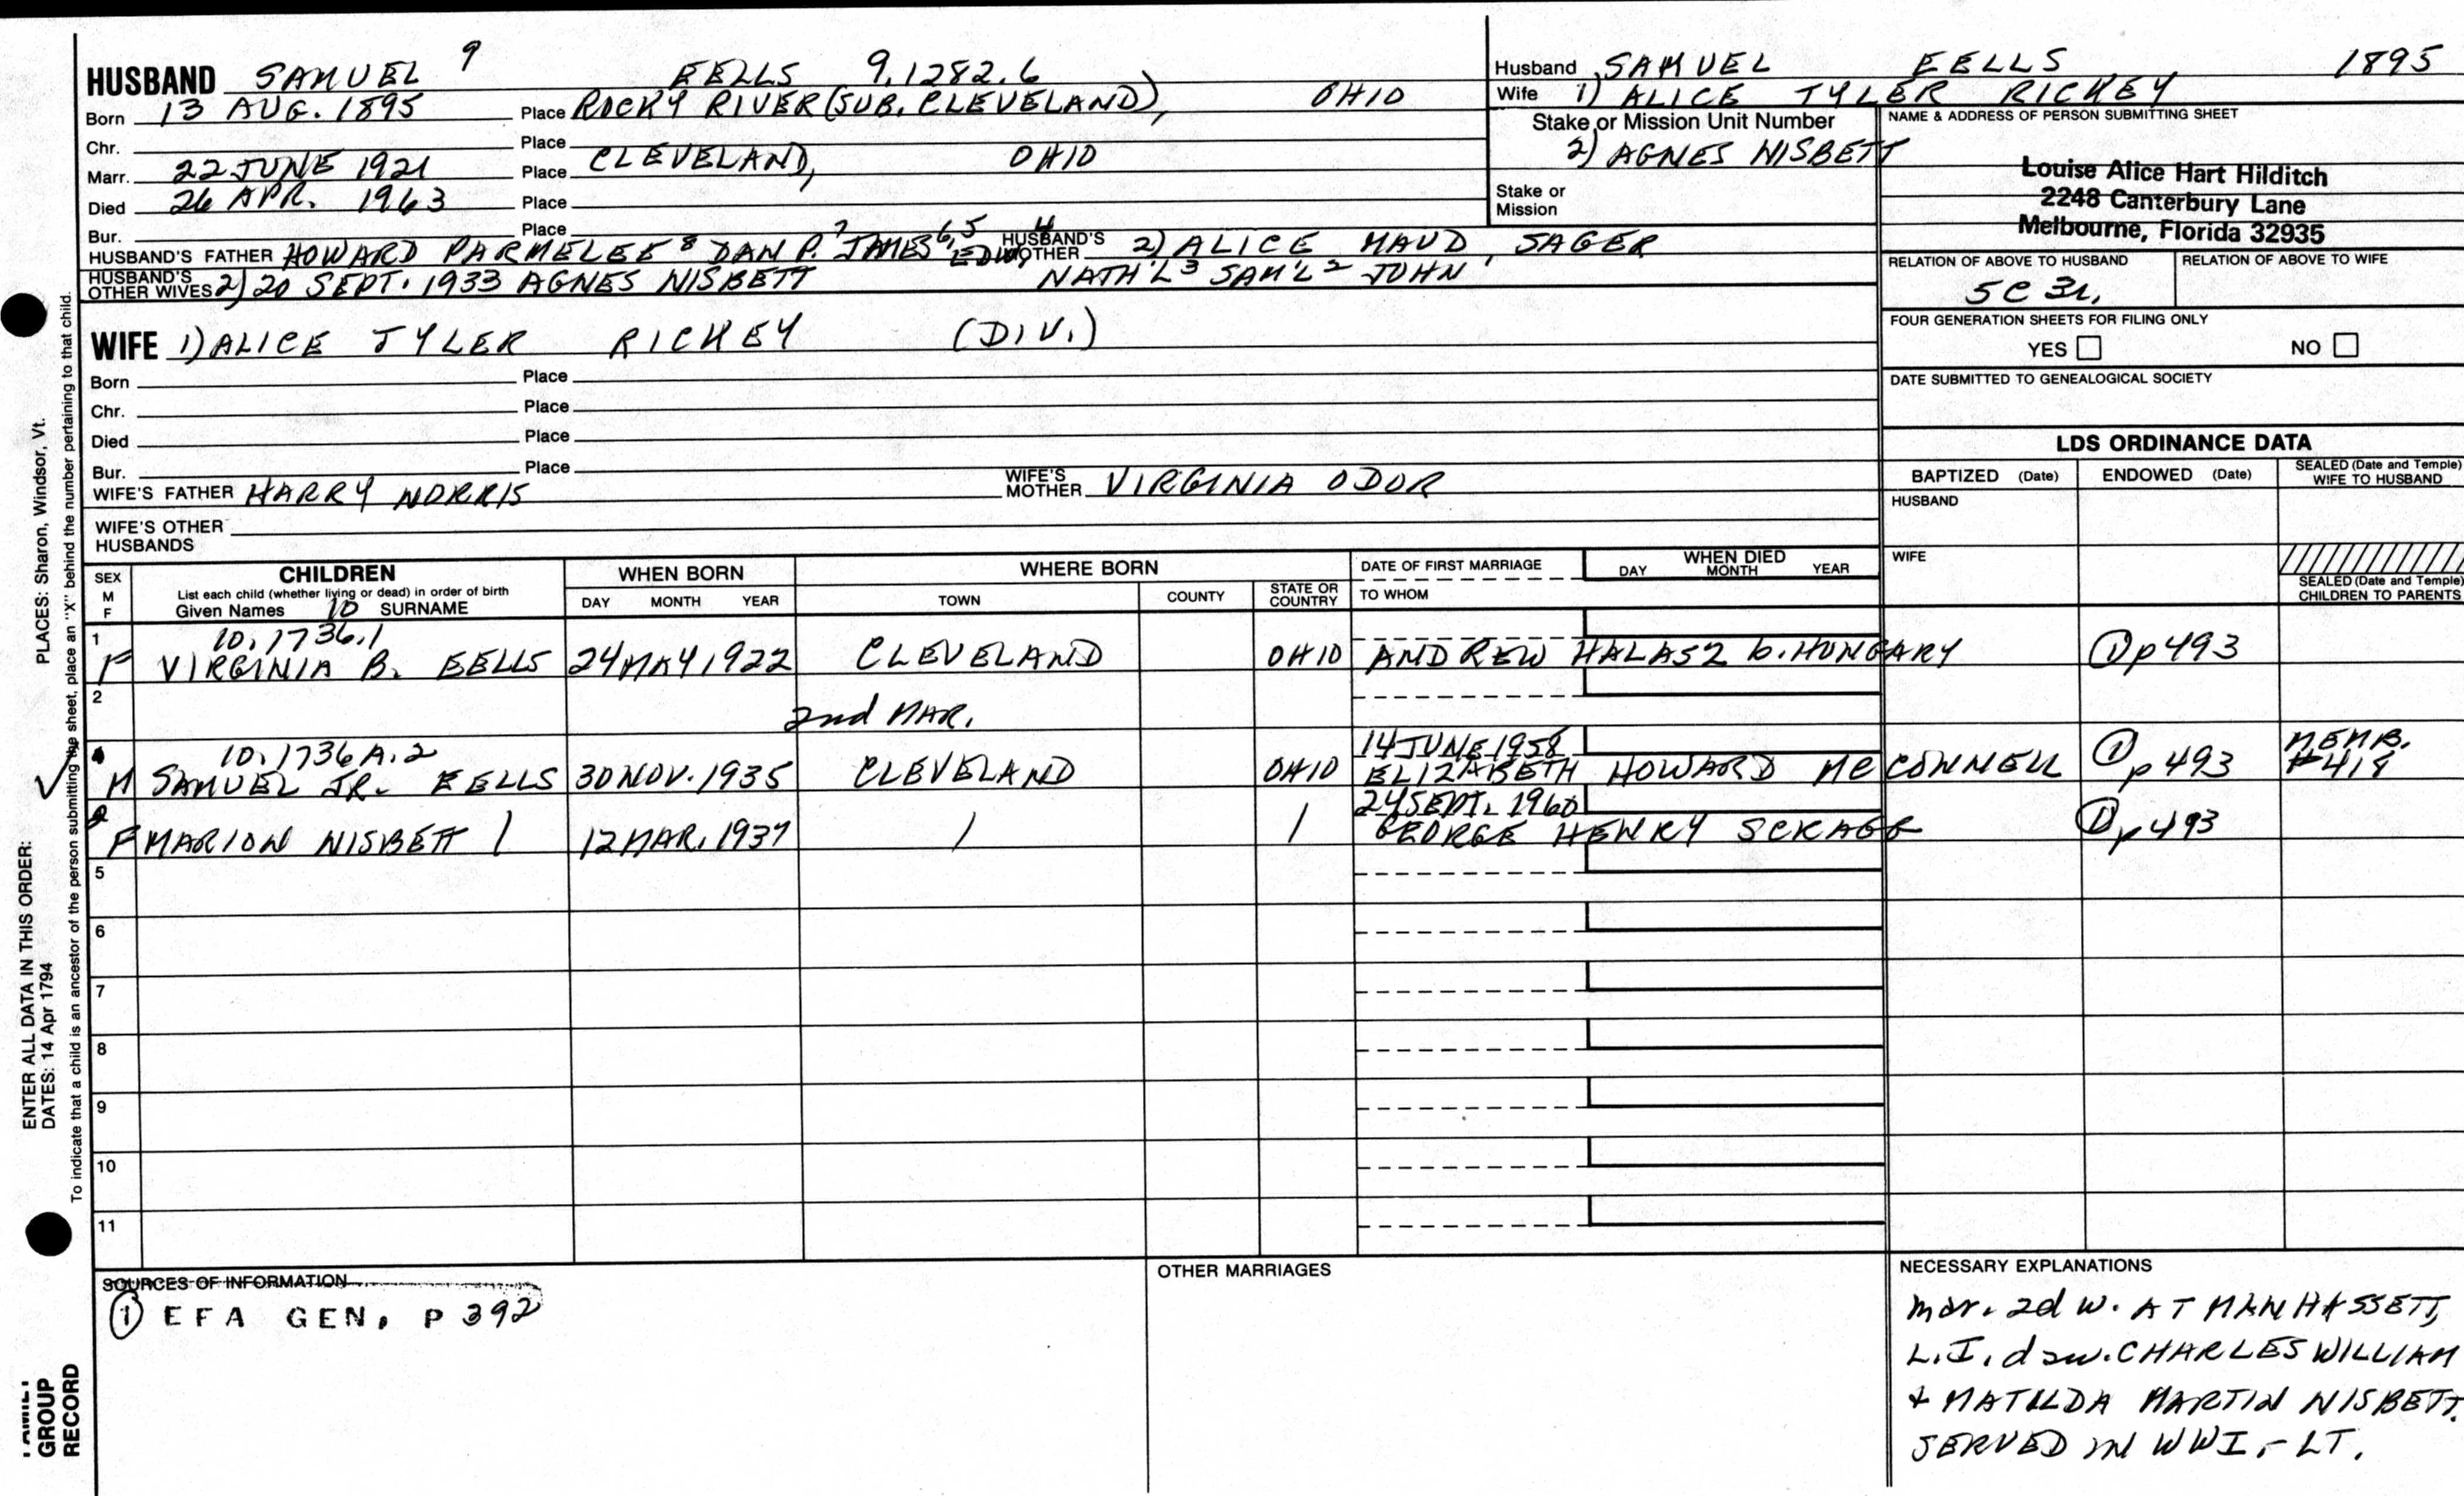 HUSBAND SAMUEL 9 EELLS 9.1282.6
Born 13 AUG. 1895 Place ROCKY RIVER (SUB. CLEVELAND), OHIO
Chr. Place
Marr. 22 JUNE 1921 Place CLEVELAND, OHIO
Died 26 APR. 1963 Place
Bur. Place
HUSBAND'S FATHER HOWARD PARMELEE 8 DAN P. 7 JAMES 6,5 EDW. 4 HUSBAND'S MOTHER 2) ALICE MAUD SAGER
HUSBAND'S OTHER WIVES 2) 20 SEPT. 1933 AGNES NISBETT NATH'L 3 SAM'L 2 JOHN 1
Husband SAMUEL EELLS 1895
Wife 1) ALICE TYLER RICKEY
Stake or Mission Unit Number
2) AGNES NISBETT
Stake or Mission
NAME & ADDRESS OF PERSON SUBMITTING SHEET
Louise Alice Hart Hilditch
2248 Canterbury Lane
Melbourne, Florida 32935
RELATION OF ABOVE TO HUSBAND RELATION OF ABOVE TO WIFE
5C 3r.
FOUR GENERATION SHEETS FOR FILING ONLY
YES NO
DATE SUBMITTED TO GENEALOGICAL SOCIETY
WIFE 1) ALICE TYLER RICKEY (DIV.)
Born Place
Chr. Place
Died Place
Bur. Place
WIFE'S FATHER HARRY NORRIS WIFE'S MOTHER VIRGINIA ODOR
WIFE'S OTHER HUSBANDS
LDS ORDINANCE DATA
BAPTIZED (Date) ENDOWED (Date) SEALED (Date and Temple) WIFE TO HUSBAND
HUSBAND
WIFE
SEALED (Date and Temple) CHILDREN TO PARENTS
SEX M F
CHILDREN
List each child (whether living or dead) in order of birth
Given Names 10 SURNAME
WHEN BORN
DAY MONTH YEAR
WHERE BORN
TOWN COUNTY STATE OR COUNTRY
DATE OF FIRST MARRIAGE
TO WHOM
WHEN DIED
DAY MONTH YEAR
1 10.1736.1
F VIRGINIA B. EELLS 24 MAY 1922 CLEVELAND OHIO ANDREW HALASZ b. HUNGARY ① p 493
2
2nd MAR.
10.1736A.2 14 JUNE 1958
M SAMUEL JR. EELLS 30 NOV. 1935 CLEVELAND OHIO ELIZABETH HOWARD McCONNELL ① p 493 MEMB. #418
24 SEPT. 1960
F MARION NISBETT 12 MAR. 1937 GEORGE HENRY SCRAGG ① p 493
5
6
7
8
9
10
11
SOURCES OF INFORMATION
① EFA GEN. P 392
OTHER MARRIAGES
NECESSARY EXPLANATIONS
Mar. 2d w. AT MANHASSETT,
L.I. dau. CHARLES WILLIAM
+ MATILDA MARTIN NISBETT.
SERVED IN WWI - LT.
ENTER ALL DATA IN THIS ORDER:
PLACES: Sharon, Windsor, Vt.
DATES: 14 Apr 1794
To indicate that a child is an ancestor of the person submitting the sheet, place an "X" behind the number pertaining to that child.
FAMILY
GROUP
RECORD